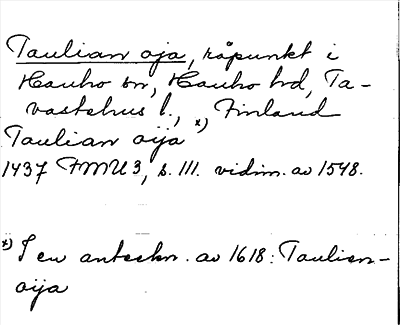 Taulian oja, råpunkt i
Hauho sn, Hauho hd, Ta-
vastehus l., x) Finland
Taulian oija
1437 FMU 3, s. 111. vidim. av 1548.
x) I en anteckn. av 1618: Taulian-
oija